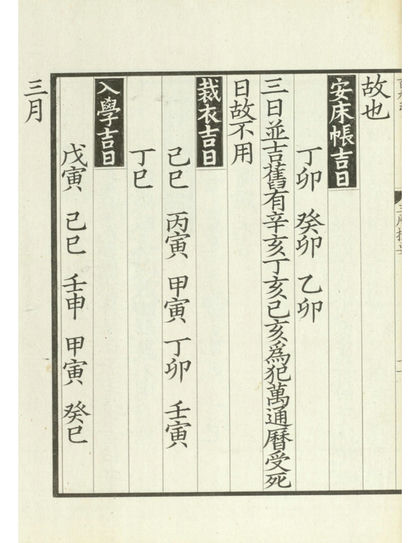 故也
安床帳吉日
丁卯 癸卯 乙卯
三日並吉舊有辛亥丁亥己亥爲犯萬通曆受死
日故不用
裁衣吉日
己巳 丙寅 甲寅 丁卯 壬寅
丁巳
入學吉日
戊寅 己巳 壬申 甲寅 癸巳
三月